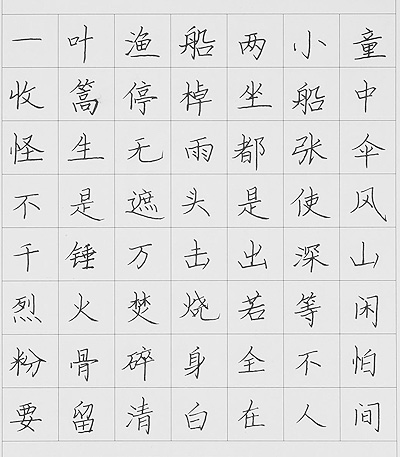 一叶渔船两小童
收篙停棹坐船中
怪生无雨都张伞
不是遮头是使风
千锤万击出深山
烈火焚烧若等闲
粉骨碎身全不怕
要留清白在人间